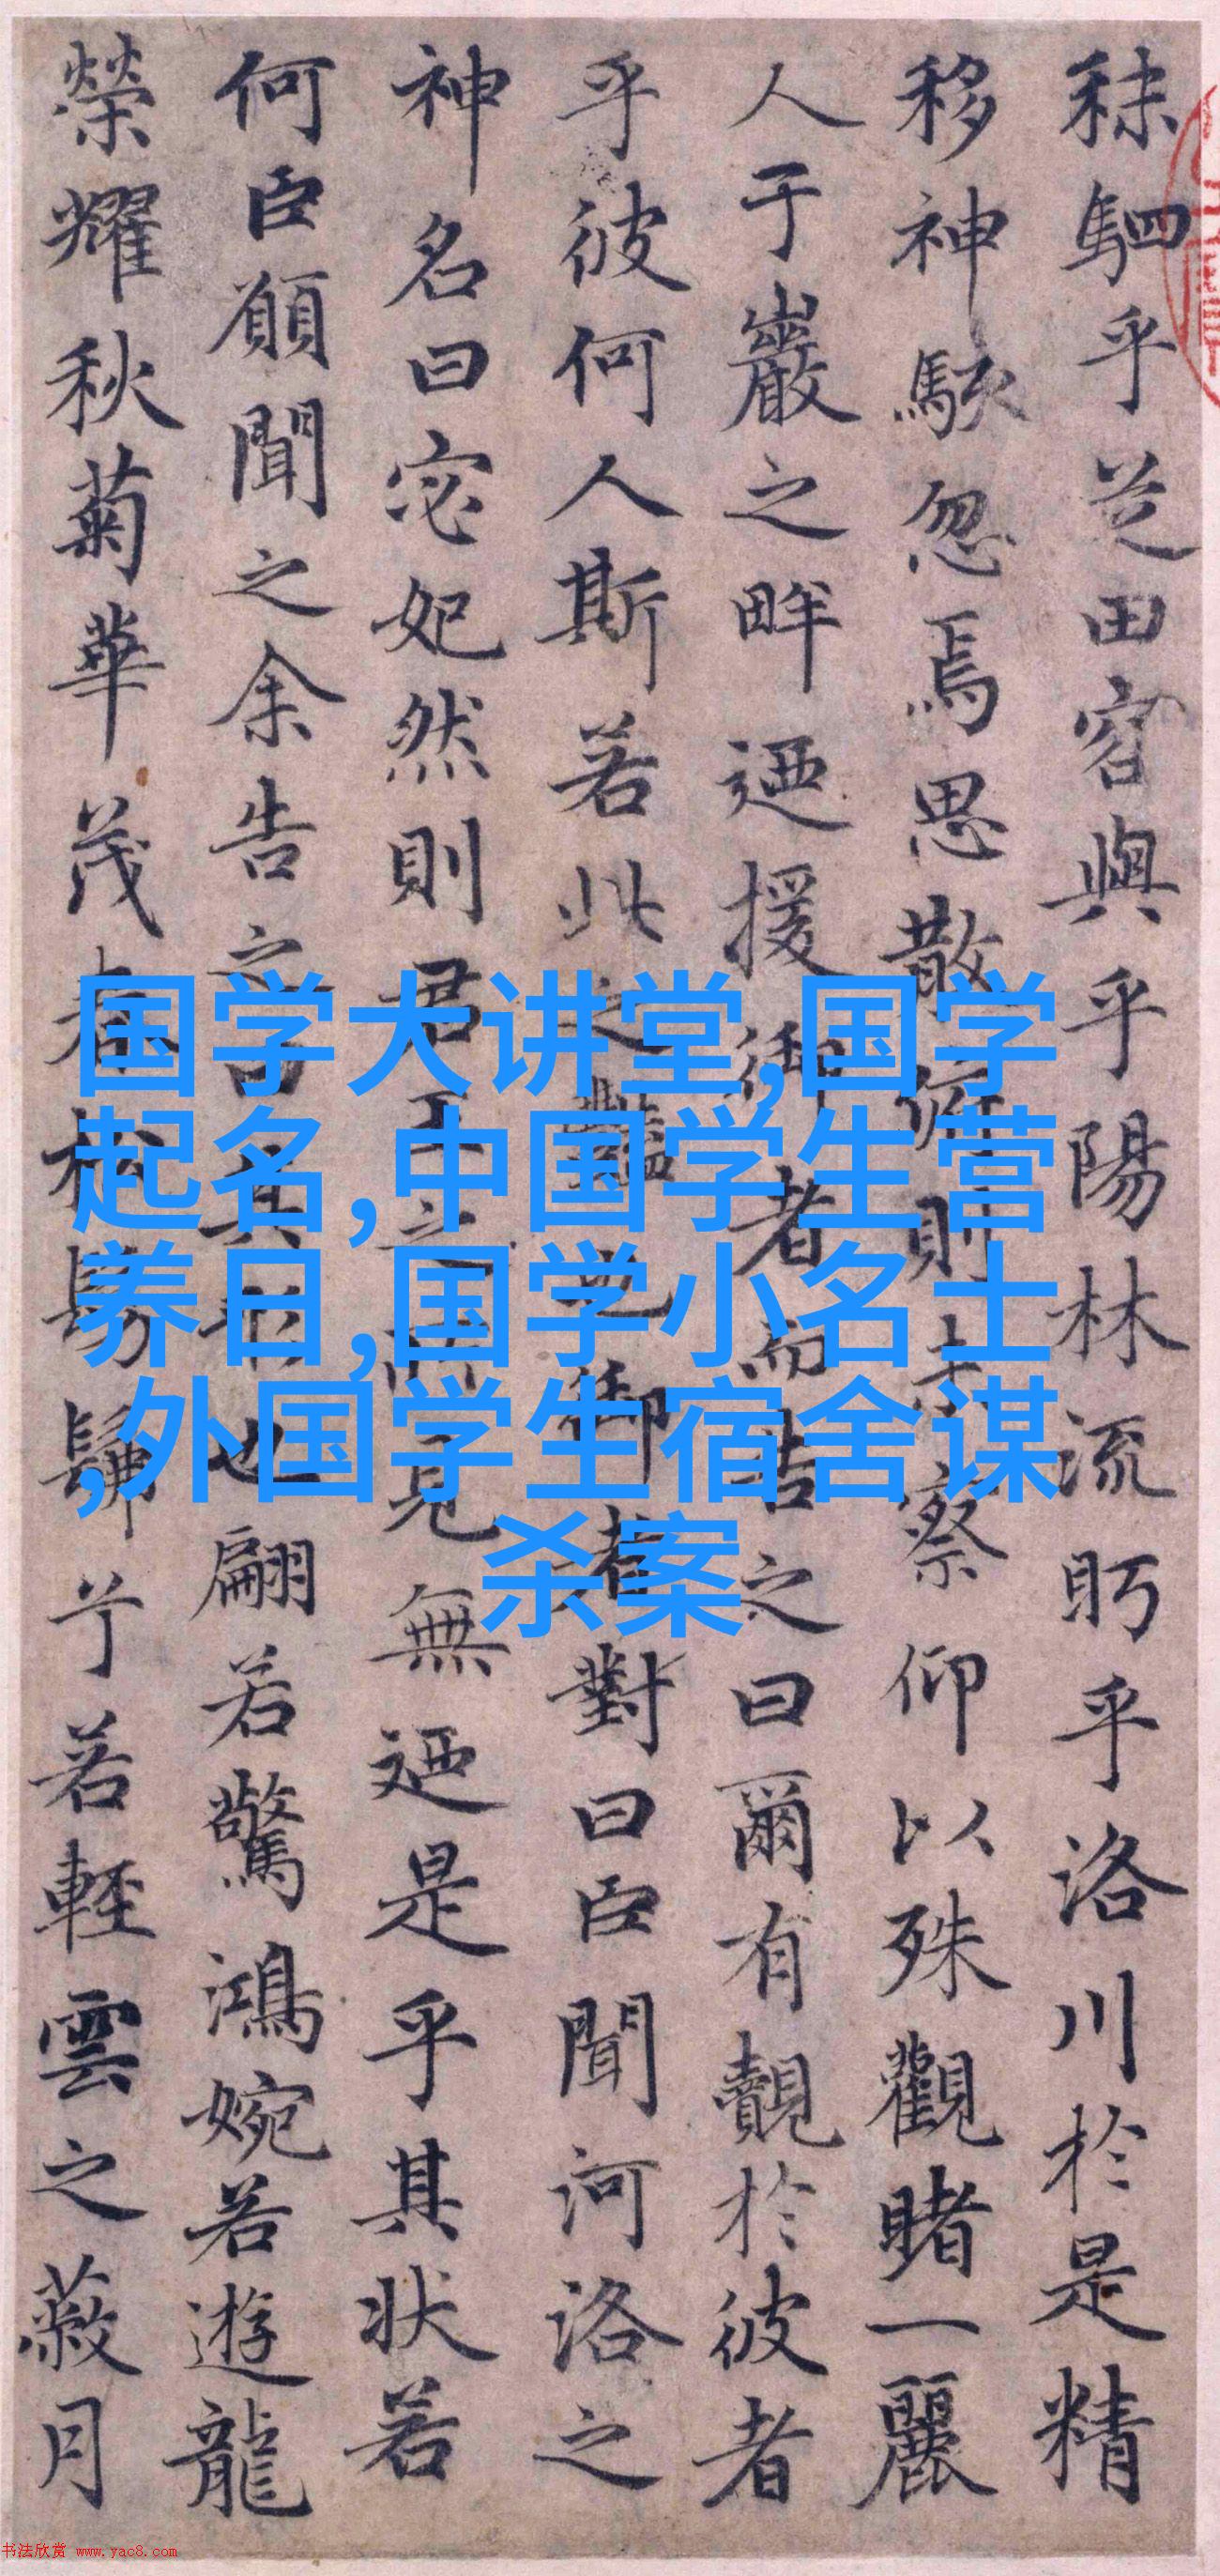 秣駟乎芝田容與乎陽林流眄乎洛川於是精
移神駭忽焉思散俯則未察仰以殊觀睹一麗
人于巖之畔迺援御者而告之曰爾有覿於彼者
乎彼何人斯若此之豔也御者對曰臣聞河洛之
神名曰宓妃然則君王之所見無迺是乎其狀若
何臣願聞之余告之曰其形也翩若驚鴻婉若遊龍
榮耀秋菊華茂春松髣髴兮若輕雲之蔽月
国学大讲堂,国学
起名,中国学生营
养日,国学小名士
,外国学生宿舍谋
杀案
书法欣赏 www.yac8.com